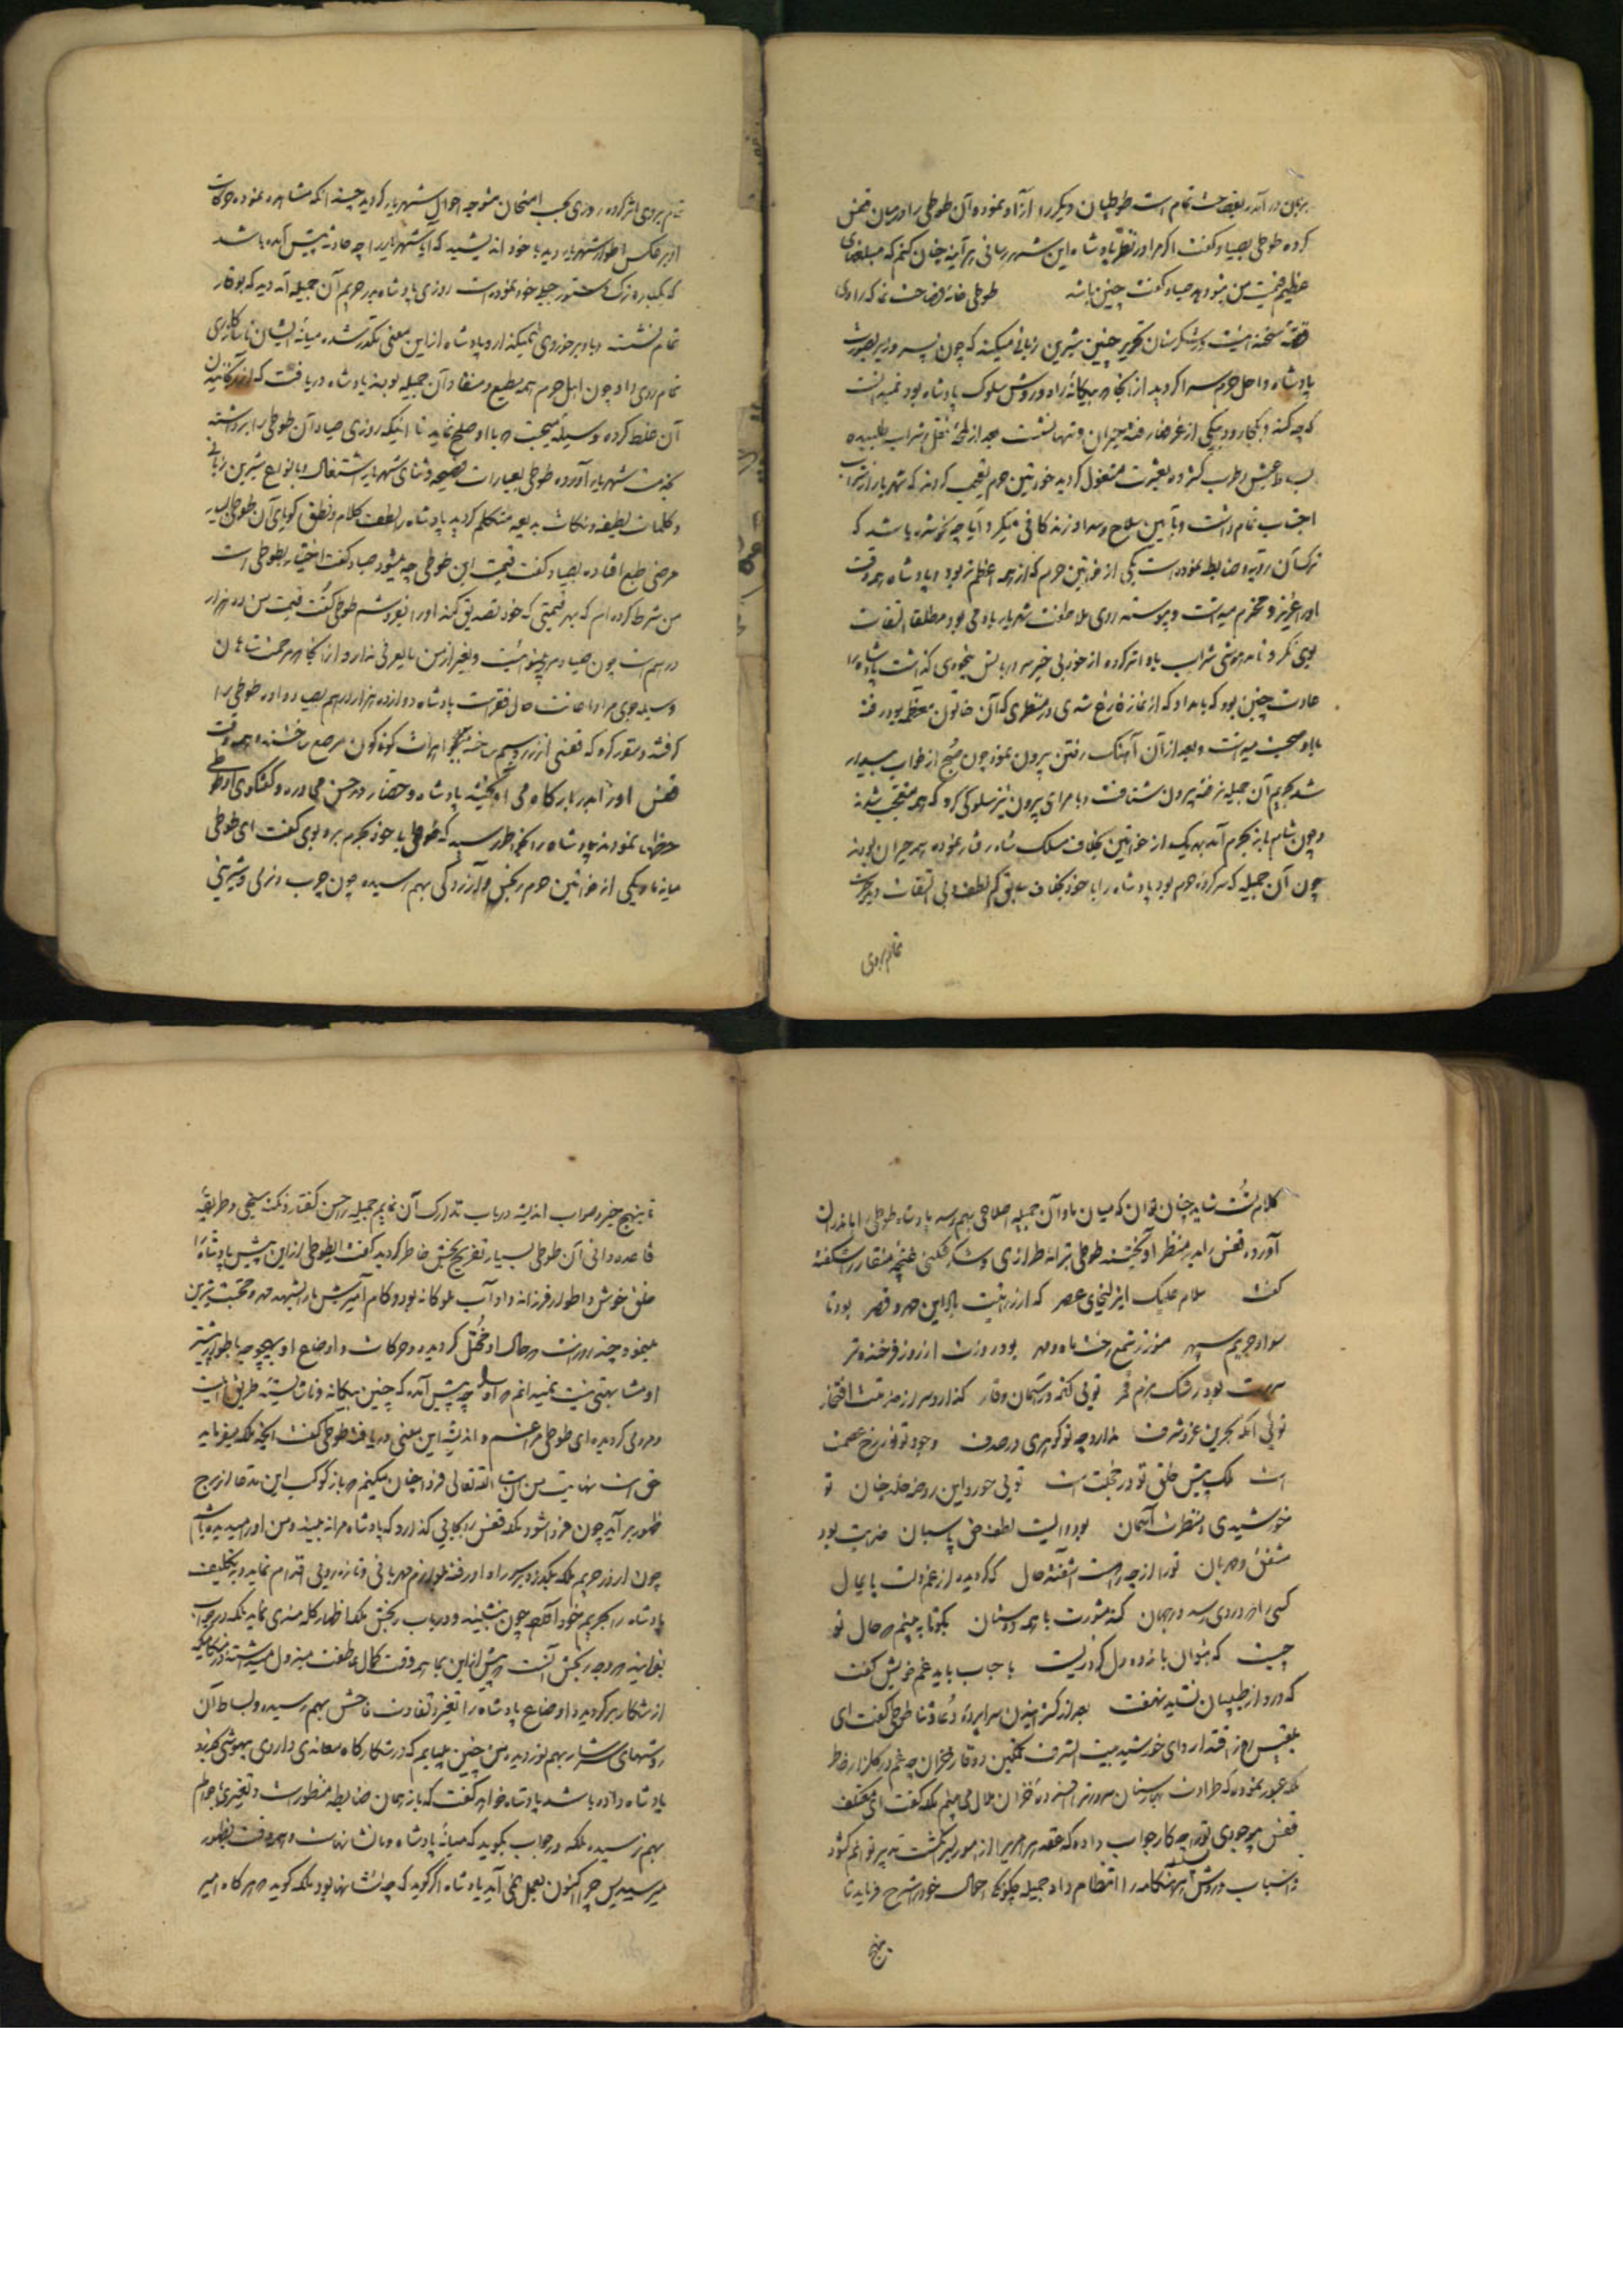 بزبان در آمد بفصاحت تمام است طوطیان دیگر را آزاد نموده آن طوطی را در میان قفس
کرده طوطی بصیاد کفت اکر مرا در نظر پادشاه این شهر رسانی هر آینه چنان کنم که مبلغهای
عظیم قیمت من بتو دهد صیاد کفت چنین باشد طوطی خانهٔ فصاحت نما که راوی
قصهٔ سخندانیست در شکرستان تحریر چنین شیرین زبانی میکند که چون پسر وزیر بصورت
پادشاه داخل حرم سرا کردید از انجا که بیکانهٔ راه و روش سلوک پادشاه بود نمیدانست
که چه کند و بکجا رود بیکی از غرفها رفته حیران و تنها نشست بعد از لمحهٔ نقل و شراب طلبیده
بساط عیش و طرب کسترده بعشرت مشغول کردید خواتین حرم تعجب کردند که شهریار از شراب
اجتناب تمام داشت و بآیین صلاح و سداد زندکانی میکرد آیا چه شده باشد که
ترک آن رویه و ضابطه نموده است یکی از خواتین حرم که از همه اعظم تر بود و پادشاه همه وقت
او را عزیز و محترم میداشت و پیوسته روی ملاطفت شهریار با وی بود مطلقا التفات
بوی نکرد تا مدهوشی شراب باو اثر کرده از خود بی خبر سر در بالش بیخودی کذاشت پادشاه را
عادت چنین بود که بامداد که از نماز فارغ شدی در منظری که آن خاتون معظمه بود رفته
با او صحبت میداشت و بعد از آن آهنک رفتن بیرون نمود چون صبح از خواب بیدار
شد بحریم آن جمیله نرفته بیرون شتافت و با مرای بیرون نیز سلوکی کرد که همه متعجب شدند
و چون شام باز بحرم آمد بهر یک از خواتین بخلاف مسلک شاه رفتار نموده همه حیران بودند
چون آن جمیله که سرکردهٔ حرم بود پادشاه را با خود بخلاف سابق کم لطف و بی التفات دید حیرت
تمام بروی
تمام بروی اثر کرده روزی بجهت امتحان متوجه احوال شهریار کردید چندانکه مشاهده نموده حرکات
او بر عکس اطوار شهریار دید با خود اندیشید که آیا شهریار را چه حادثه پیش آمده باشد
که یکباره ترک دستور جبلی خود نموده است روزی پادشاه در حریم آن جمیله آمد دید که بوقار
تمام نشست و باو برخوردی نمیکند و پادشاه از این معنی مکدر شده میانهٔ ایشان ناسازکاری
تمام روی داد چون اهل حرم همه مطیع و منقاد آن جمیله بودند پادشاه دریافت که
آن غلط کرده وسیله میجست که با او صلح نماید تا آنکه روزی صیاد آن طوطی را برداشته
بخدمت شهریار آورد طوطی بعبارات فصیحه و ثنای شهریار اشتغال و بانواع شیرین زبانی
و کلمات لطیفه و نکات بدیعه متکلم کردید پادشاه را لطف کلام و نطق کویای آن طوطی بسیار
مرضی طبع افتاده بصیاد کفت قیمت این طوطی چه میشود صیاد کفت اختیار بطوطی است
من شرط کرده ام که بهر قیمتی که خود تصدیق کند او را بفروشم طوطی کفت قیمت من ده هزار
درهم است چون صیاد مرد بینوائیست و بغیر از من مایعرفی ندارد و از انجا که مرحمت شاهان
وسیله جوی مراد و اعانت حال فقراست پادشاه دوازده هزار درهم بصیاد داد و طوطی را
کرفته دستور کرد که قفسی از زر و سیم ساخته بجواهرات کوناکون مرصع ساختند و همه وقت
قفس او را در بارکاه می آویختند پادشاه و حضار در حسن محاوره و کفتکوی او طوطی
حظها نمودند پادشاه را بخاطر رسید که طوطی با خود بحرم برد بوی کفت ای طوطی
میانهٔ ما و یکی از خواتین حرم رنجش و آزردکی بهم رسیده چون چرب و نرمی و شیرینی
کلام تست شاید چنان توان که میان ما و آن جمیله صلاحی بهم رسد پادشاه طوطی را باندرون
آورده قفس را در منظر او آویخته طوطی بترانه طرازی و شکر شکنی غنچهٔ منقار را شکفته
کفت سلام علیک ای زلیخای عصر که از زینت بالد این مهد و قصر بود تا
سواد حریم سپهر منور ز شمع رخت ماه و مهر بود روزت از روز فرخنده تر
بود رشک بزم قمر تویی کنه در شان و قار کذارد سر از خدمتت افتخار
تویی آنکه بحرین عز و شرف ندارد چو تو کوهری در صدف وجود تو نور رخ عصمت
است ملک پیش خلق تو در خجلت است تویی حور و این روضه خلد جنان تو
خورشیدی و منظرت آسمان بود رایت لطف حق پاسبان ضریت بود
مشفق و مهربان ترا از چه راهست آشفته حال که کردیده از غم دلت پایمال
کسی را که دردی رسد در جهان کند مشورت با همه دوستان بکو تا ببینم که حال تو
چیست که بتوان باندوه دل کرد زیست با حباب باید غم خویش کفت
که درد از طبیبان نشاید نهفت بعد از کسترانیدن سراپردهٔ دعا و ثنا طوطی کفت ای
بلقیس روز اقتدار و ای خورشید بیت الشرف تمکین و وقار خزان چه غم در کلزار خاطر
ملکه عبور نموده که طراوت بهارستان سرورت را فسرده خزان ملال می بینم ملکه کفت ای معتکف
قفس موجودی ترا چه کار جواب داده که عقده هر امریرا از امور بسرانکشت تدبیر توانم کشود
و اسباب و روش هر هنکامه را انتظام داد جمیله چکونکی احوال خود را شرح فرماید تا
بنهج
تا بنهج خیر و صواب اندیشه در باب تدارک آن نمایم جمیله را حسن کفتار و نکته سنجی و طریقهٔ
قاعده دانی آن طوطی بسیار تفریح بخش خاطر کردید کفت ای طوطی از این پیش پادشاه را
خلق خوش و اطوار فرزانه و داد آب ملوکانه بود و کام آمیزش ما را بشهد مهر و محبت شیرین
مینمود چند روزست که حال او مختل کردیده و حرکات و اوضاع او بهیچوجه باطوار پیشتر
او مشابهتی نیست نمیدانم که او را چه پیش آمده که چنین بیکانه و ناشایسته طریق است
و مرویی کردیده ای طوطی مرا غم و اندیشه این معنی دریافته طوطی کفت آنچه ملکه میفرماید
حق است نهایت من انشاءالله تعالی فردا چنان میکنم که باز کوکب این مدعا از برج
ظهور بر آید چون فردا شود ملکه قفس را بجایی کذارد که پادشاه مرا نه بیند و من او را میدیده باشم
چون او در حریم ملکه بکذرد بر سر راه او رفته لوازم مهربانی و تازه رویی اقدام نماید و بتکلیف
پادشاه را بحریم خود آورد چون بنشیند و در باب رنجش ملکه اظهار کله مندی نماید ملکه در جواب
بفرماید که وجه رنجش آنست که پیش از این بما همه وقت کمال عاطفت مبذول میداشتند و از هنکامیکه
از شکار بر کردیده اوضاع پادشاه را تغیر و تفاوت فاحش بهم رسیده و بساط آن
روشهای سرشار بهم نوردیده من چنین مییابم که در شکارکاه معاندی داروی بیهوشی بخورد
پادشاه داده باشد پادشاه خواهد کفت که باز همان ضابطه منظورست و تغییری باحوالم
بهم نرسیده ملکه در جواب بکوید که میانهٔ پادشاه و ما نشانهاست و همه وقت بظهور
میرسید پس چرا اکنون بعمل نمی آید پادشاه اکر کوید که چه نشانها بود ملکه کوید که هر کاه امیر